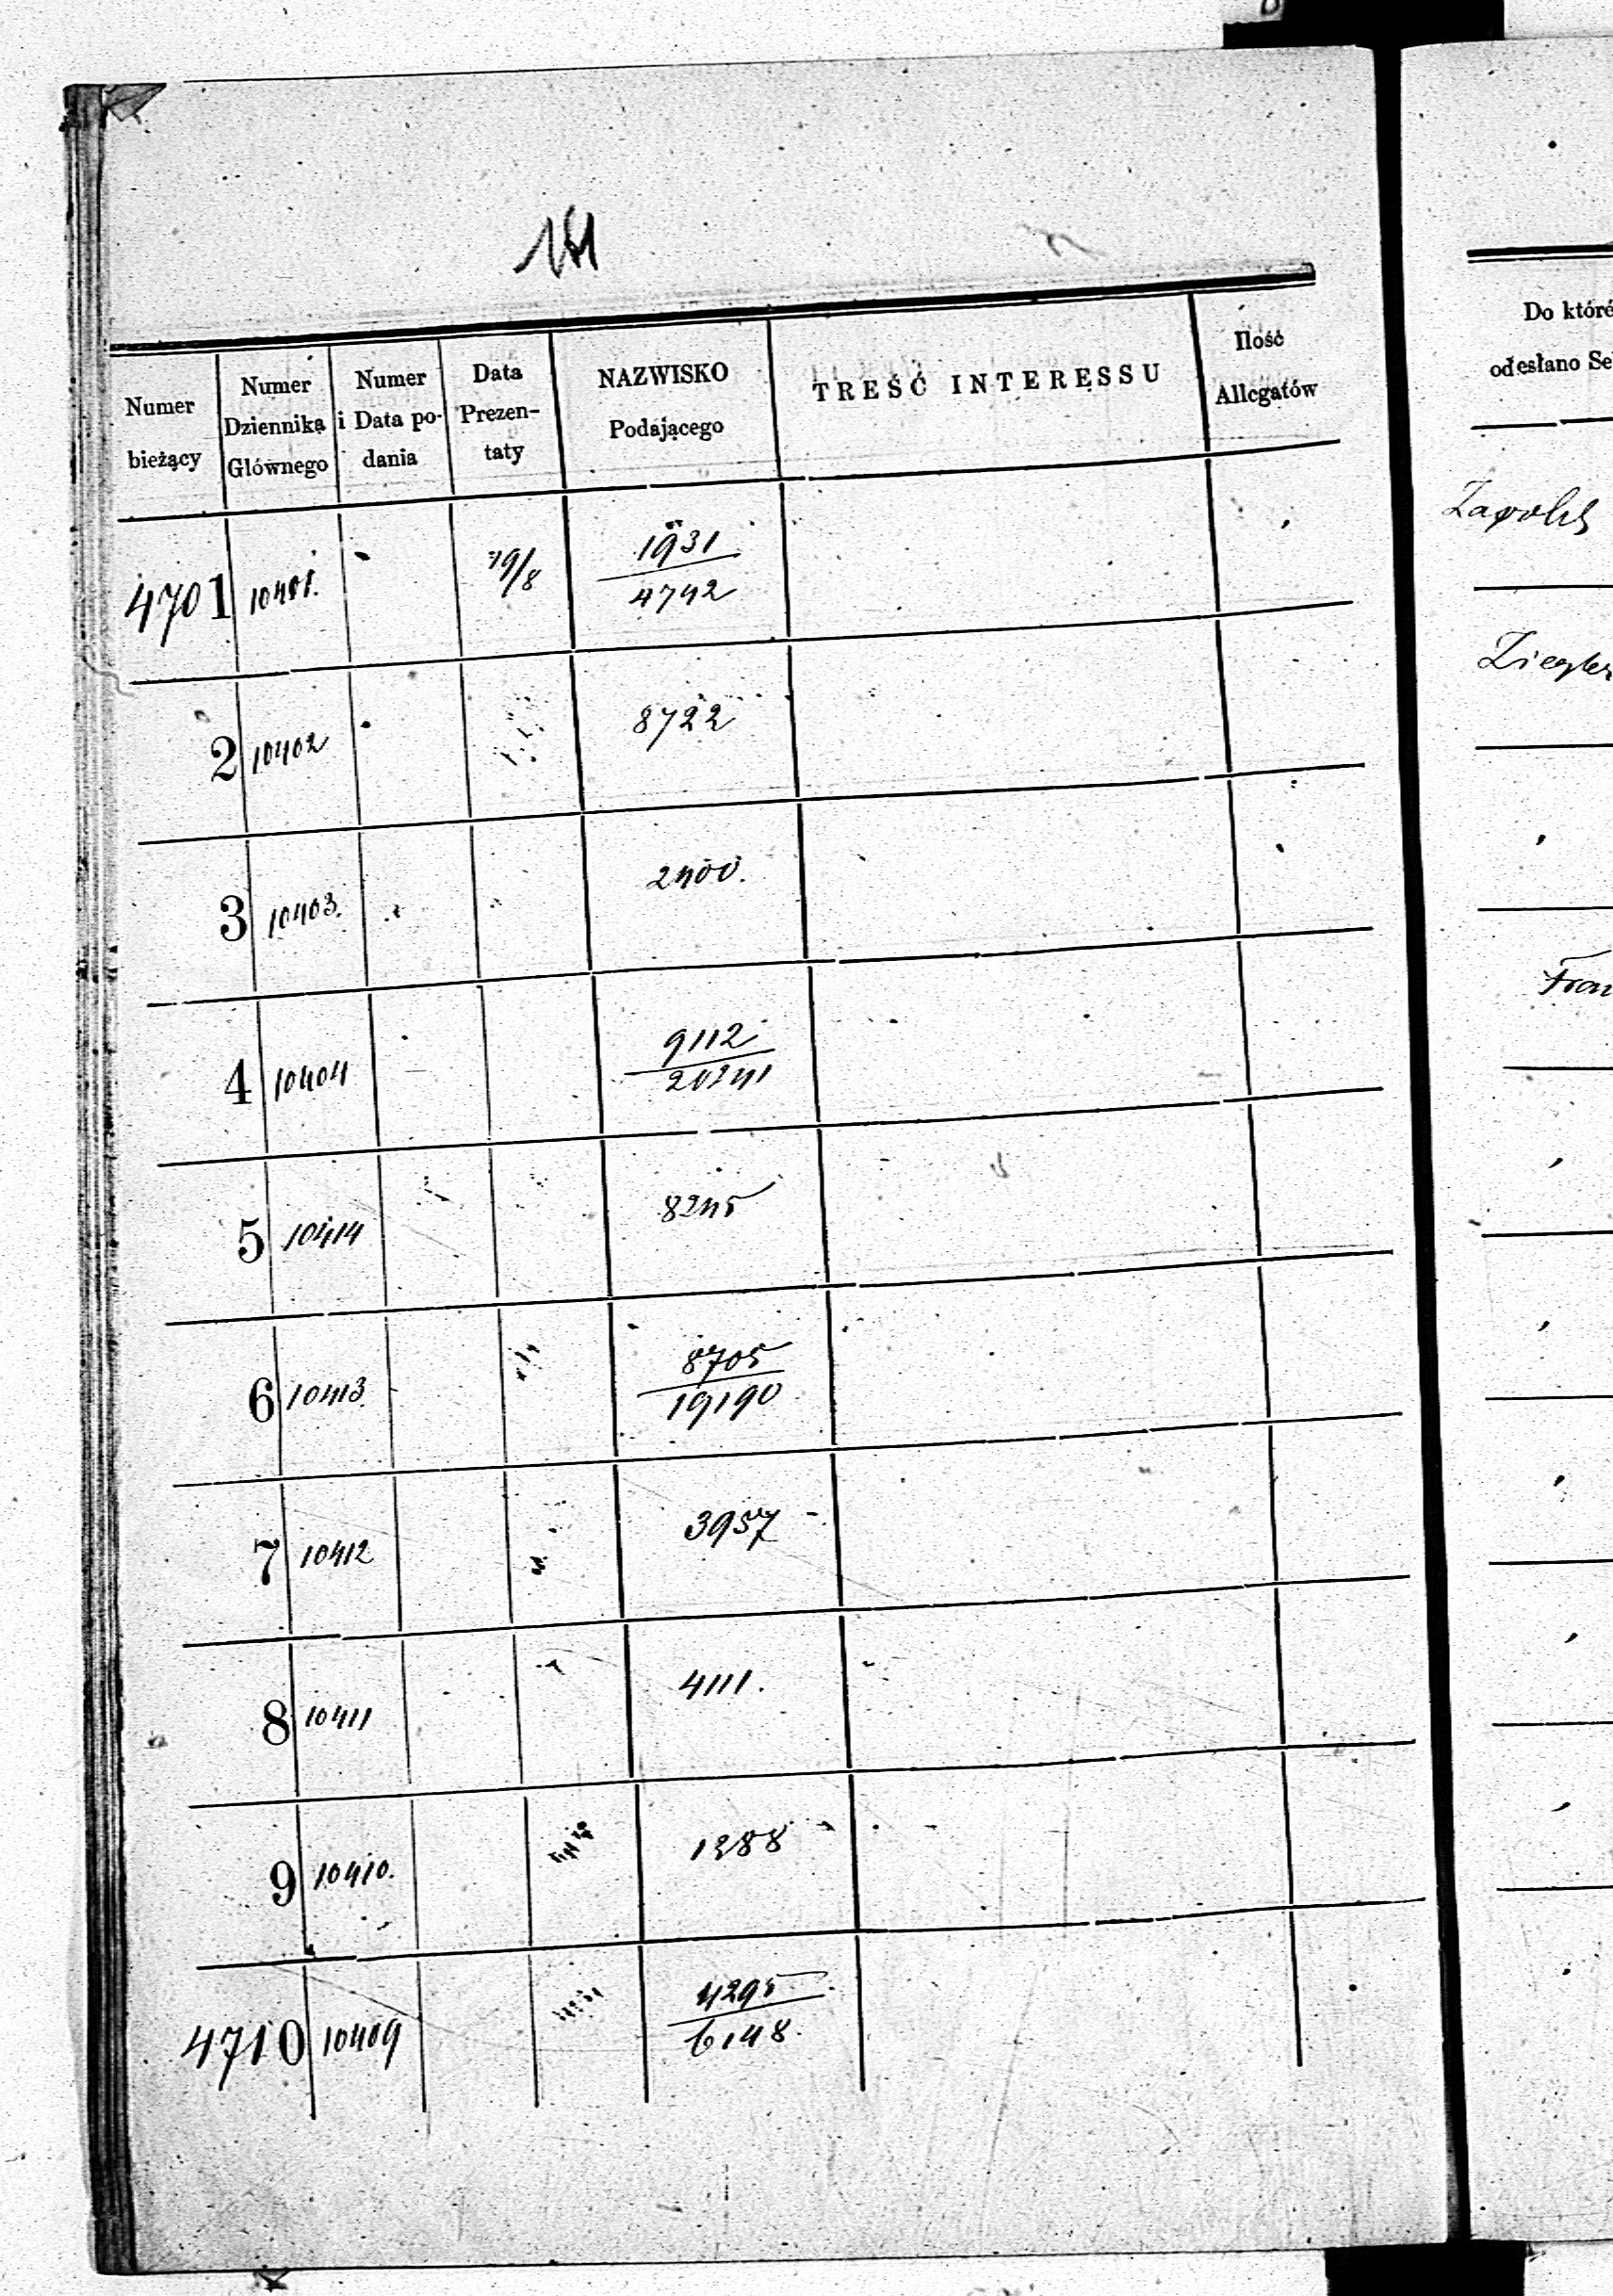 Numer bieżący | Numer Dziennika Głównego | Numer i Data podania | Data Prezentaty | NAZWISKO Podającego | TREŚĆ INTERESSU | Ilość Allegatów | Do któré odesłano Se
4701 | 10401. | 19/8 | 1931 / 4742
2 | 10402 | 8722 | Ziegler
3 | 10403. | 2400.
4 | 10404 | 9112 / 20241 | Fran
5 | 10414 | 8245
6 | 10413. | 8705 / 19190
7 | 10412 | 3957
8 | 10411 | 4111.
9 | 10410. | 1388
4710 | 10409 | 4295 / 6148.